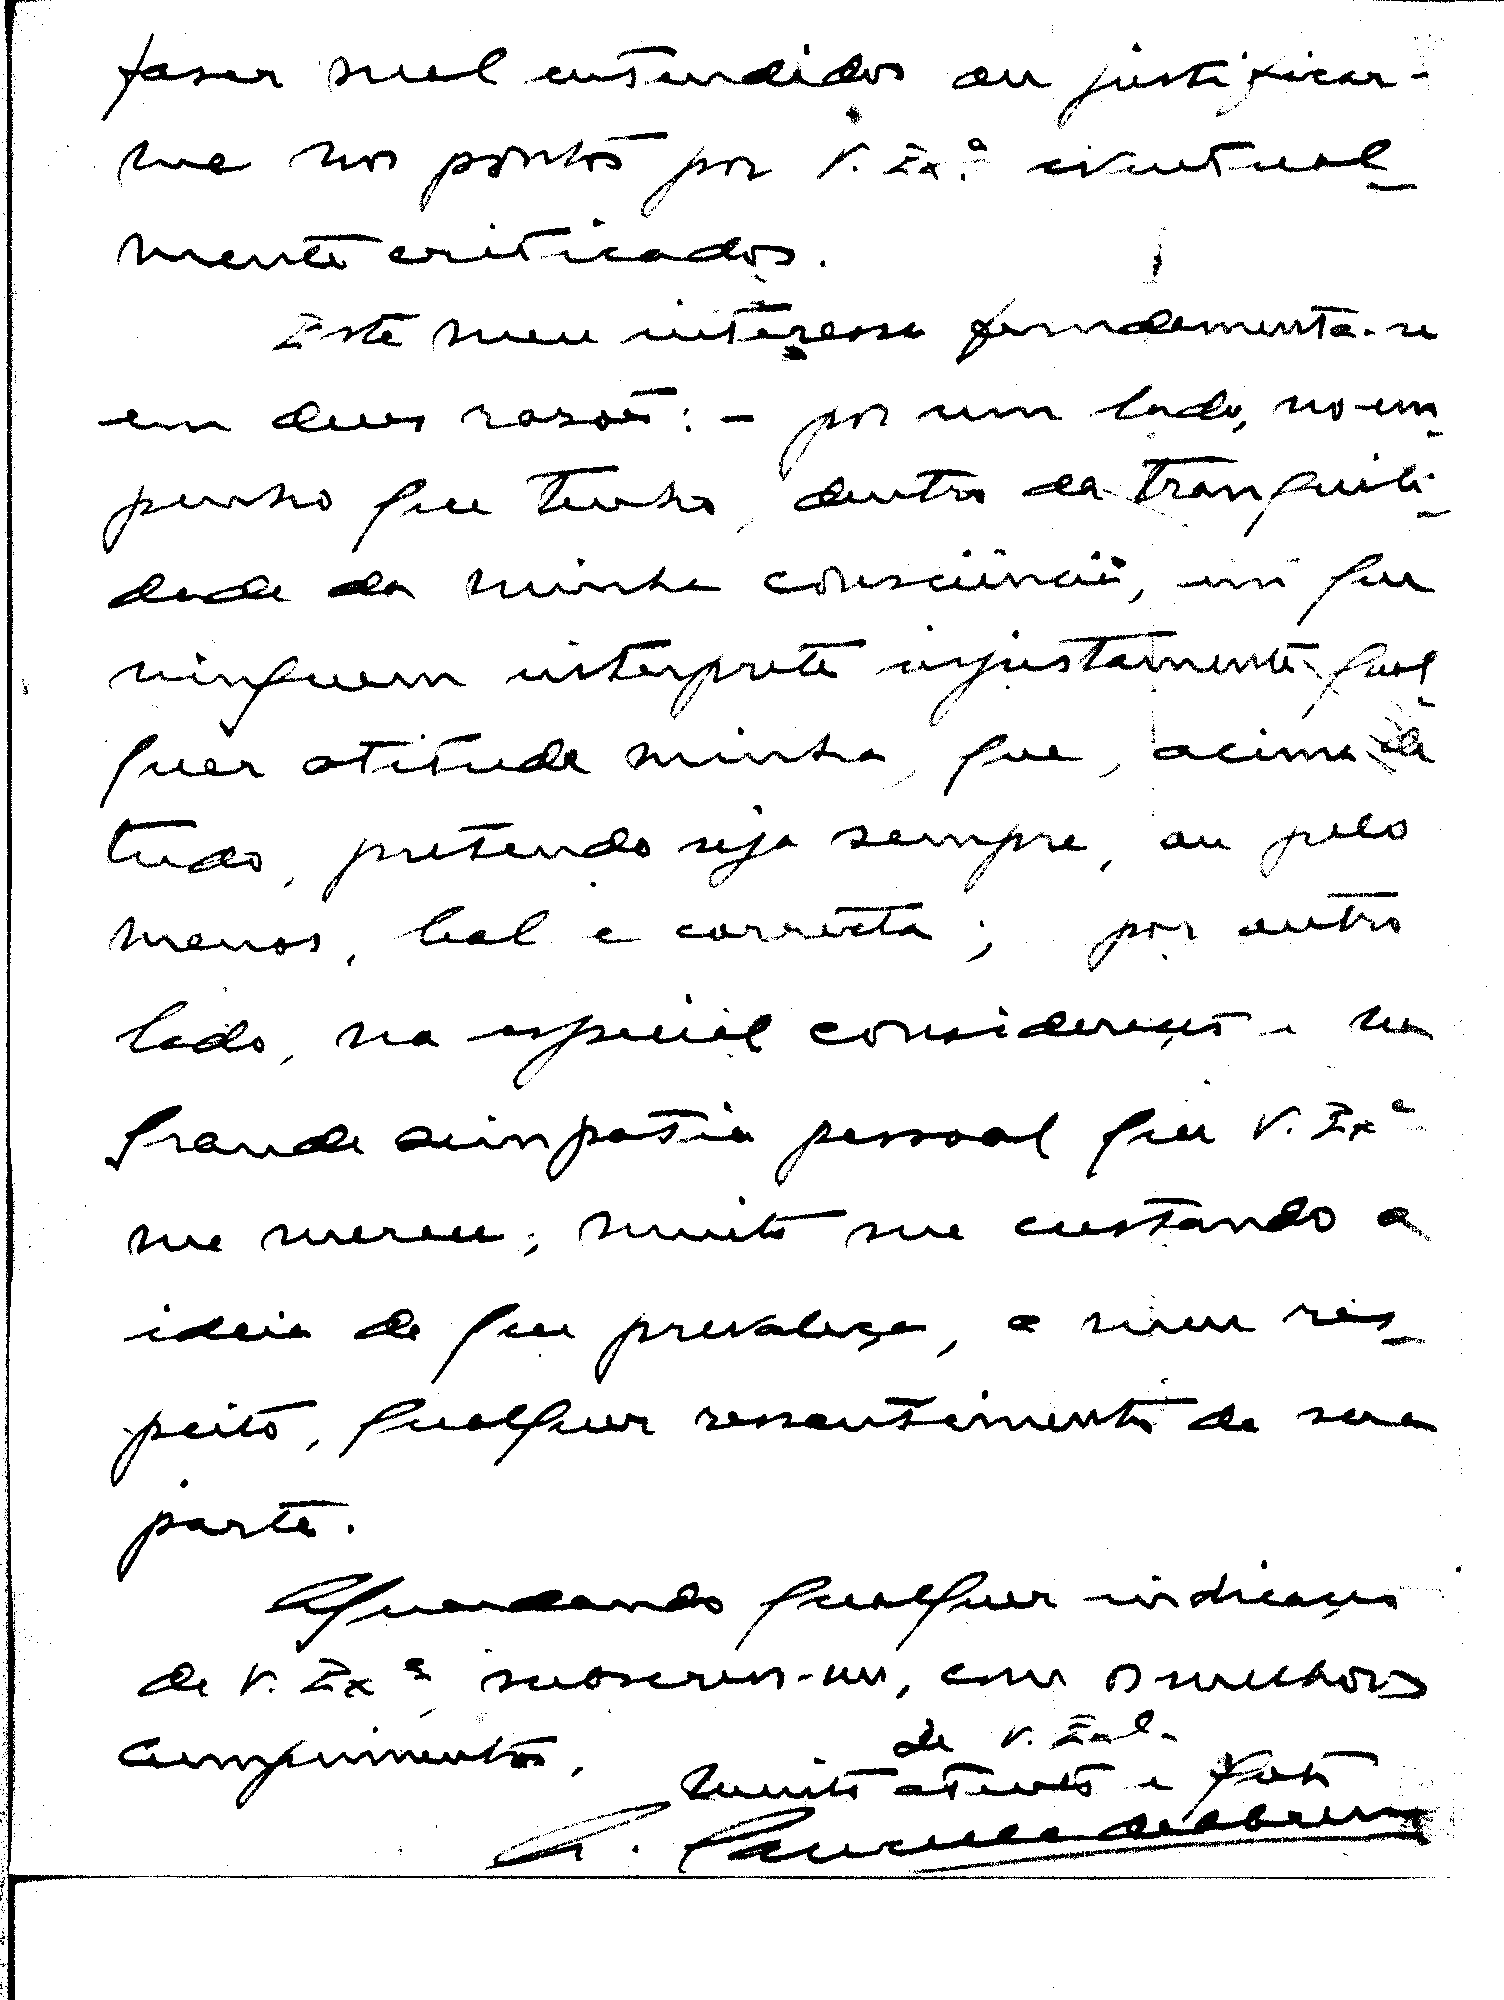 fazer mal entendidos ou justificar-
me nos pontos por V. Ex.ª eventual-
mente criticados.
Este meu interesse fundamenta-se
em duas razões: - por um lado, no em-
penho que tenho, dentro da tranquili-
dade da minha consciência, em que
ninguem interprete injustamente qual-
quer atitude minha, que, acima de
tudo, pretendo seja sempre, ou pelo
menos, leal e correcta; por outro
lado, na especial consideração e na
grande simpatia pessoal que V. Exª
me merece; muito me custando a
ideia de que prevaleça, a meu res-
peito, qualquer ressentimento de sua
parte.
Aguardando qualquer indicação
de V. Exª, subscrevo-me, com os melhores
cumprimentos,
de V. Exª.
muito atento e